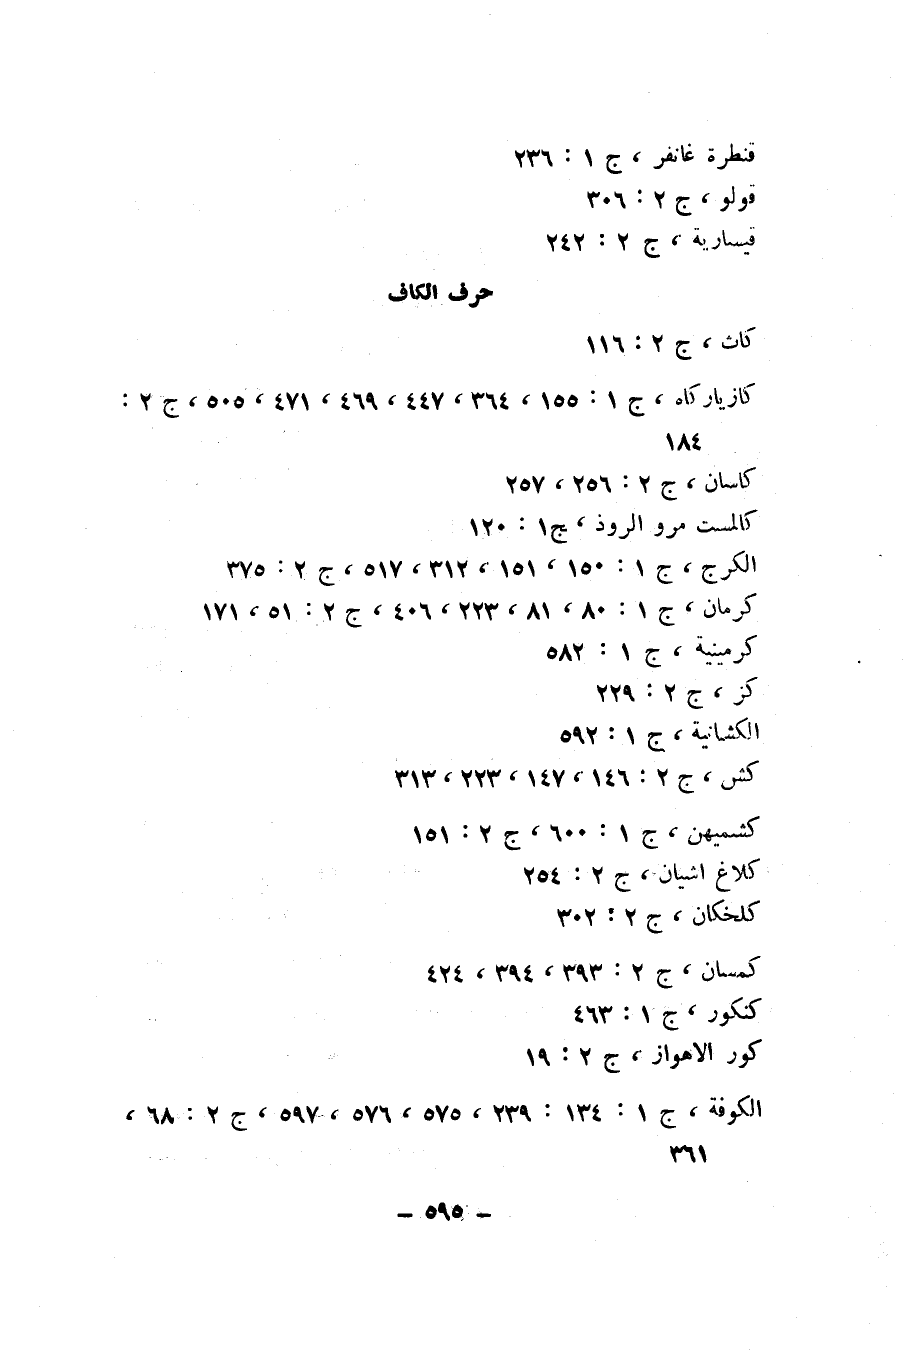 قنطرة غانفر ، ج ١ : ٢٣٦
قولو ، ج ٢ : ٣٠٦
قيسارية ، ج ٢ : ٢٤٢
حرف الكاف
كاث ، ج ٢ : ١١٦
كازياركاه ، ج ١ : ١٥٥ ، ٣٦٤ ، ٤٤٧ ، ٤٦٩ ، ٤٧١ ، ٥٠٥ ، ج ٢ :
١٨٤
كاسان ، ج ٢ : ٢٥٦ ، ٢٥٧
كالمست مرو الروذ ، ج١ : ١٢٠
الكرج ، ج ١ : ١٥٠ ، ١٥١ ، ٣١٢ ، ٥١٧ ، ج ٢ : ٣٧٥
كرمان ، ج ١ : ٨٠ ، ٨١ ، ٢٢٣ ، ٤٠٦ ، ج ٢ : ٥١ ، ١٧١
كرمينية ، ج ١ : ٥٨٢
كز ، ج ٢ : ٢٢٩
الكشانية ، ج ١ : ٥٩٢
كش ، ج ٢ : ١٤٦ ، ١٤٧ ، ٢٢٣ ، ٣١٣
كشميهن ، ج ١ : ٦٠٠ ، ج ٢ : ١٥١
كلاغ اشيان ، ج ٢ : ٢٥٤
كلخكان ، ج ٢ : ٣٠٢
كمسان ، ج ٢ : ٣٩٣ ، ٣٩٤ ، ٤٢٤
كنكور ، ج ١ : ٤٦٣
كور الاهواز ، ج ٢ : ١٩
الكوفة ، ج ١ : ١٣٤ : ٢٣٩ ، ٥٧٥ ، ٥٧٦ ، ٥٩٧ ، ج ٢ : ٦٨ ،
٣٦١
– ٥٩٥ –